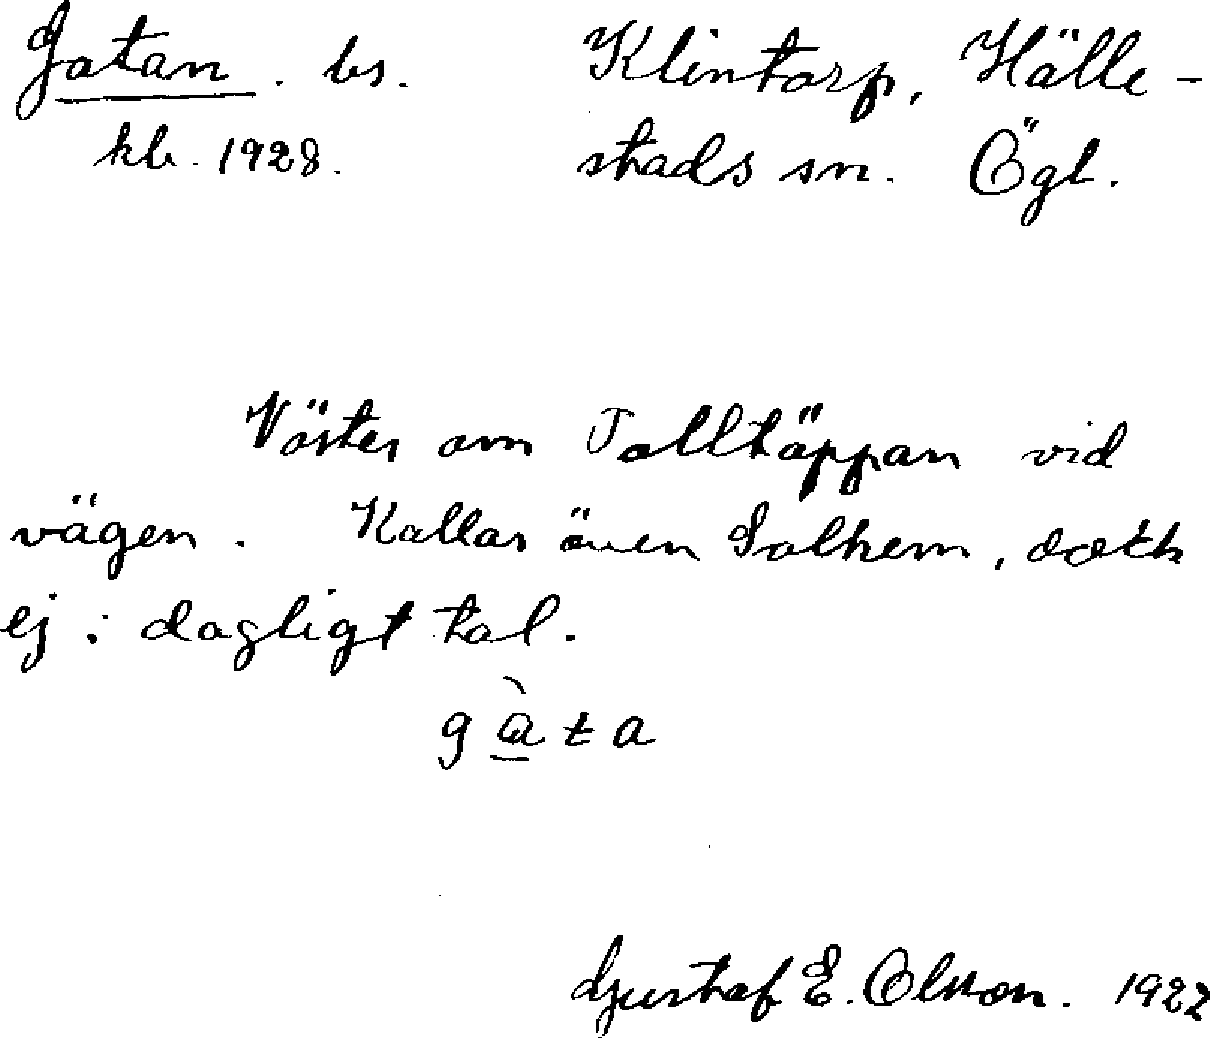 Gatan. bs. Klintorp, Hälle-
kb. 1928. stads sn. Ögl.
Väster om Talltäppan vid
vägen. Kallas även Solhem, dock
ej i dagligt tal.
gàta
Gustaf E. Olsson. 1922